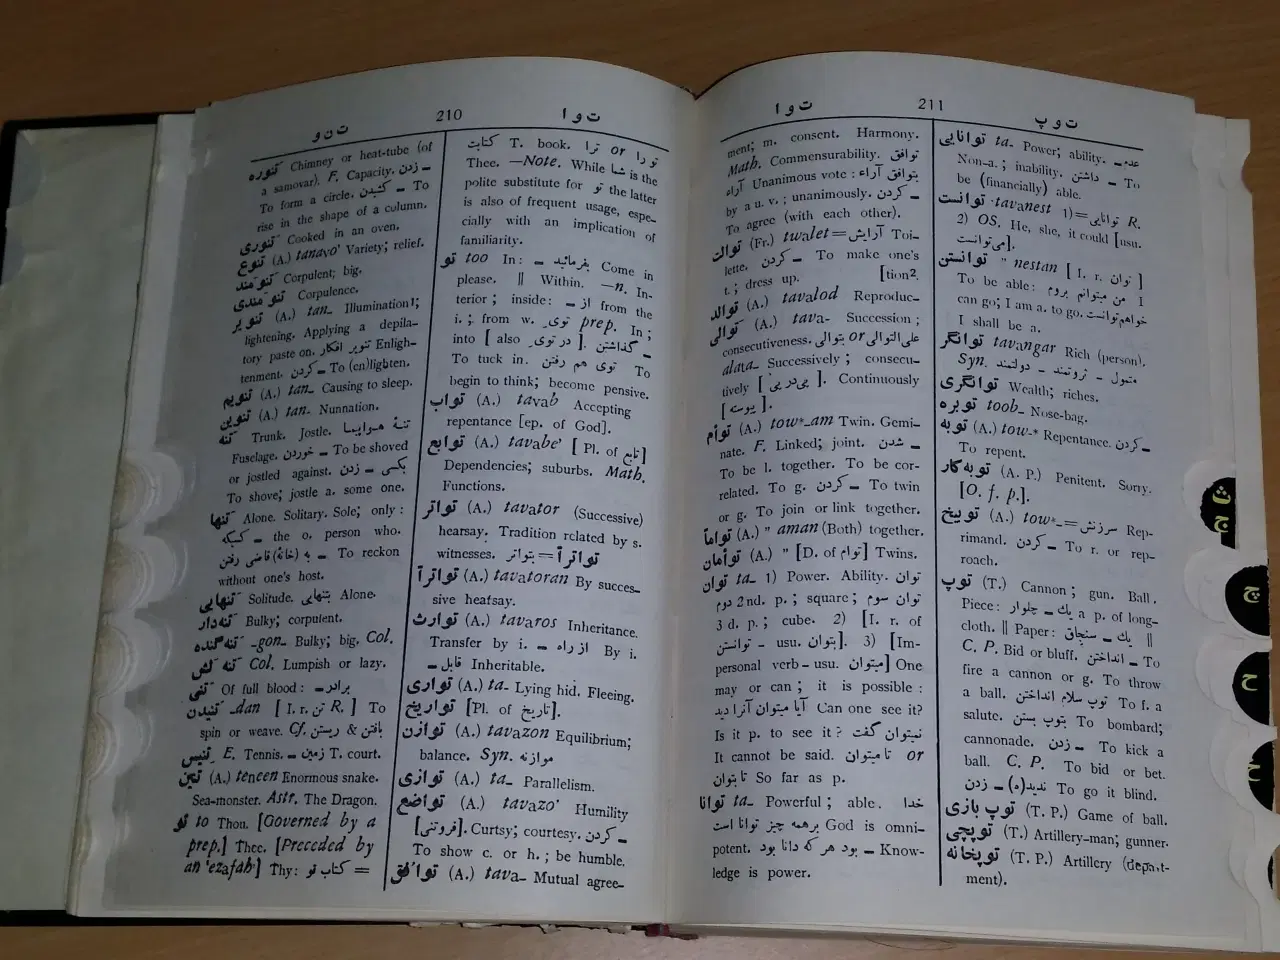 تنو 210 توا
تنوره Chimney or heat-tube (of
a samovar). F. Capacity. ـ زدن
To form a circle. ـ کشیدن To
rise in the shape of a column.
تنوری Cooked in an oven.
تنوع (A.) tanavo' Variety; relief.
تنومند Corpulent; big.
تنومندی Corpulence.
تنویر (A.) tan_ Illumination1;
lightening. Applying a depila-
tory paste on. تنویر افکار Enligh-
tenment. ـ کردن To (en)lighten.
تنویم (A.) tan_ Causing to sleep.
تنوین (A.) tan. Nunnation.
تنه Trunk. Jostle. تنهٔ هواپیما
Fuselage. ـ خوردن To be shoved
or jostled against. ـ زدن بکسی
To shove; jostle a. some one.
تنها Alone. Solitary. Sole; only :
ـ کسیکه the o. person who.
ـ به (خانهٔ) قاضی رفتن To reckon
without one's host.
تنهایی Solitude. بتنهایی Alone.
تنه‌دار Bulky; corpulent.
تنه‌گنده _gon_ Bulky; big. Col.
تنه لش Col. Lumpish or lazy.
تنی Of full blood : ـ برادر
تنیدن _dan [ I. r. تن R. ] To
spin or weave. Cf. ریستن & بافتن
تنیس E. Tennis. ـ زمین T. court.
تنین (A.) teneen Enormous snake.
Sea-monster. Astr. The Dragon.
تو to Thou. [Governed by a
prep.] Thee. [Preceded by
an 'ezafah] Thy: کتاب تو =
کتابت T. book. ترا or تو را
Thee. —Note. While شما is the
polite substitute for تو the latter
is also of frequent usage, espe-
cially with an implication of
familiarity.
تو too In : ـ بفرمائید Come in
please. || Within. —n. In-
terior ; inside: ـ از from the
i. ; from w. توی prep. In ;
into [ also در توی ]. ـ گذاشتن
To tuck in. توی هم رفتن To
begin to think; become pensive.
تواب (A.) tavab Accepting
repentance [ep. of God].
توابع (A.) tavabe' [ Pl. of تابع]
Dependencies; suburbs. Math.
Functions.
تواتر (A.) tavator (Successive)
hearsay. Tradition related by s.
witnesses. بتواتر = تواتراً
تواتراً (A.) tavatoran By succes_
sive hearsay.
توارث (A.) tavaros Inheritance.
Transfer by i. ـ از راه By i.
ـ قابل Inheritable.
تواری (A.) ta- Lying hid. Fleeing.
تواریخ [Pl. of تاریخ].
توازن (A.) tavazon Equilibrium;
balance. Syn. موازنه
توازی (A.) ta_ Parallelism.
تواضع (A.) tavazo' Humility
[فروتنی]. Curtsy; courtesy. ـ کردن
To show c. or h. ; be humble.
توافق (A.) tava- Mutual agree-
توا 211 توپ
ment; m. consent. Harmony.
Math. Commensurability. توافق
آراء Unanimous vote : بتوافق آراء
by a u. v. ; unanimously. ـ کردن
To agree (with each other).
توالت (Fr.) twalet = آرایش Toi-
lette. ـ کردن To make one's
t. ; dress up. [tion2.
توالد (A.) tavalod Reproduc-
توالی (A.) tava- Succession ;
consecutiveness. بتوالی or علی‌التوالی
alata_ Successively ; consecu-
tively [ پی در پی ]. Continuously
[ پیوسته ].
توأم (A.) tow*_am Twin. Gemi-
nate. F. Linked; joint. ـ شدن
To be l. together. To be cor-
related. To g. ـ کردن To twin
or g. To join or link together.
توأماً (A.) " aman (Both) together.
توأمان (A.) " [D. of توأم] Twins.
توان ta_ 1) Power. Ability. توان
دوم 2nd. p. ; square ; توان سوم
3 d. p. ; cube. 2) [I. r. of
توانستن - usu. بتوان]. 3) [Im-
personal verb - usu. میتوان] One
may or can ; it is possible :
آیا میتوان آنرا دید Can one see it?
Is it p. to see it ? نمیتوان گفت
It cannot be said. تا میتوان or
تا بتوان So far as p.
توانا ta_ Powerful ; able. خدا
برهمه چیز توانا است God is omni-
potent. ـ بود هر که دانا بود Know-
ledge is power.
توانایی ta- Power; ability. ـ عدم
Non-a. ; inability. ـ داشتن To
be (financially) able.
توانست tavanest 1) = توانایی R.
2) OS. He, she, it could [usu.
می‌توانست].
توانستن " nestan [ I. r. توان ]
To be able: من میتوانم بروم I
can go; I am a. to go. خواهم توانست
I shall be a.
توانگر tavangar Rich (person).
Syn. متمول - ثروتمند - دولتمند
توانگری Wealth; riches.
توبره toob_ Nose-bag.
توبه (A.) tow-* Repentance. ـ کردن
To repent.
توبه‌کار (A. P.) Penitent. Sorry.
[O. f. p.].
توبیخ (A.) tow*_ = سرزنش Rep-
rimand. ـ کردن To r. or rep-
roach.
توپ (T.) Cannon ; gun. Ball.
Piece: یک ـ چلوار a p. of long-
cloth. || Paper: یک ـ سنجاق ||
C. P. Bid or bluff. ـ انداختن To
fire a cannon or g. To throw
a ball. توپ سلام انداختن To f. a
salute. بتوپ بستن To bombard;
cannonade. ـ زدن To kick a
ball. C. P. To bid or bet.
ندید(ه) ـ زدن To go it blind.
توپ بازی (T. P.) Game of ball.
توپچی (T.) Artillery-man; gunner.
توپخانه (T. P.) Artillery (depart-
ment).
ث ج
چ
ح